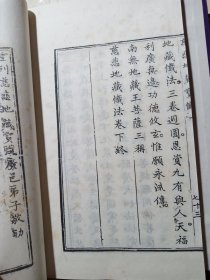 地藏懺法三卷週圓恩資九有與人天福
利廣無邊功德攸玄惟願永流傳
南無地藏王菩薩三稱
慈悲地藏懺法卷下終
刊慈悲地藏寶懺
邑弟子敬助